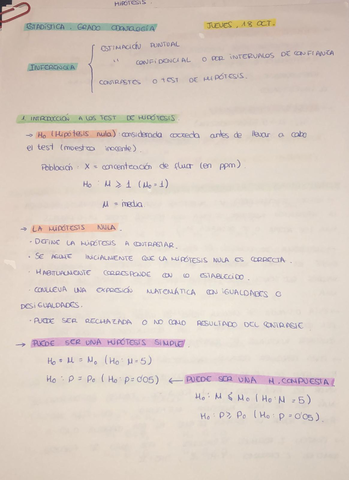 HIPÓTESIS.
ESTADÍSTICA. GRADO ODONTOLOGÍA
JUEVES, 18 OCT.
INFERENCIA
ESTIMACIÓN PUNTUAL
" CONFIDENCIAL O POR INTERVALOS DE CONFIANZA
CONTRASTES O TEST DE HIPÓTESIS.
1. INTRODUCCIÓN A LOS TEST DE HIPÓTESIS
→ H0 (Hipótesis nula) considerada correcta antes de llevar a cabo
el test (muestra inocente).
Población: X = concentración de fluor (en ppm)
H0: M ≥ 1 (M0 = 1)
M = media
→ LA HIPÓTESIS NULA.
· DEFINE LA HIPÓTESIS A CONTRASTAR.
· SE ASUME INICIALMENTE QUE LA HIPÓTESIS NULA ES CORRECTA.
· HABITUALMENTE CORRESPONDE CON LO ESTABLECIDO.
· CONLLEVA UNA EXPRESIÓN MATEMÁTICA CON IGUALDADES O
DESIGUALDADES.
· PUEDE SER RECHAZADA O NO COMO RESULTADO DEL CONTRASTE
→ PUEDE SER UNA HIPÓTESIS SIMPLE
H0 = M = M0 (H0: M = 5)
H0: P = P0 (H0: p = 0'05) ← PUEDE SER UNA H. COMPUESTA
H0: M ≤ M0 (H0: M = 5)
H0: P ≥ P0 (H0: P = 0'05).